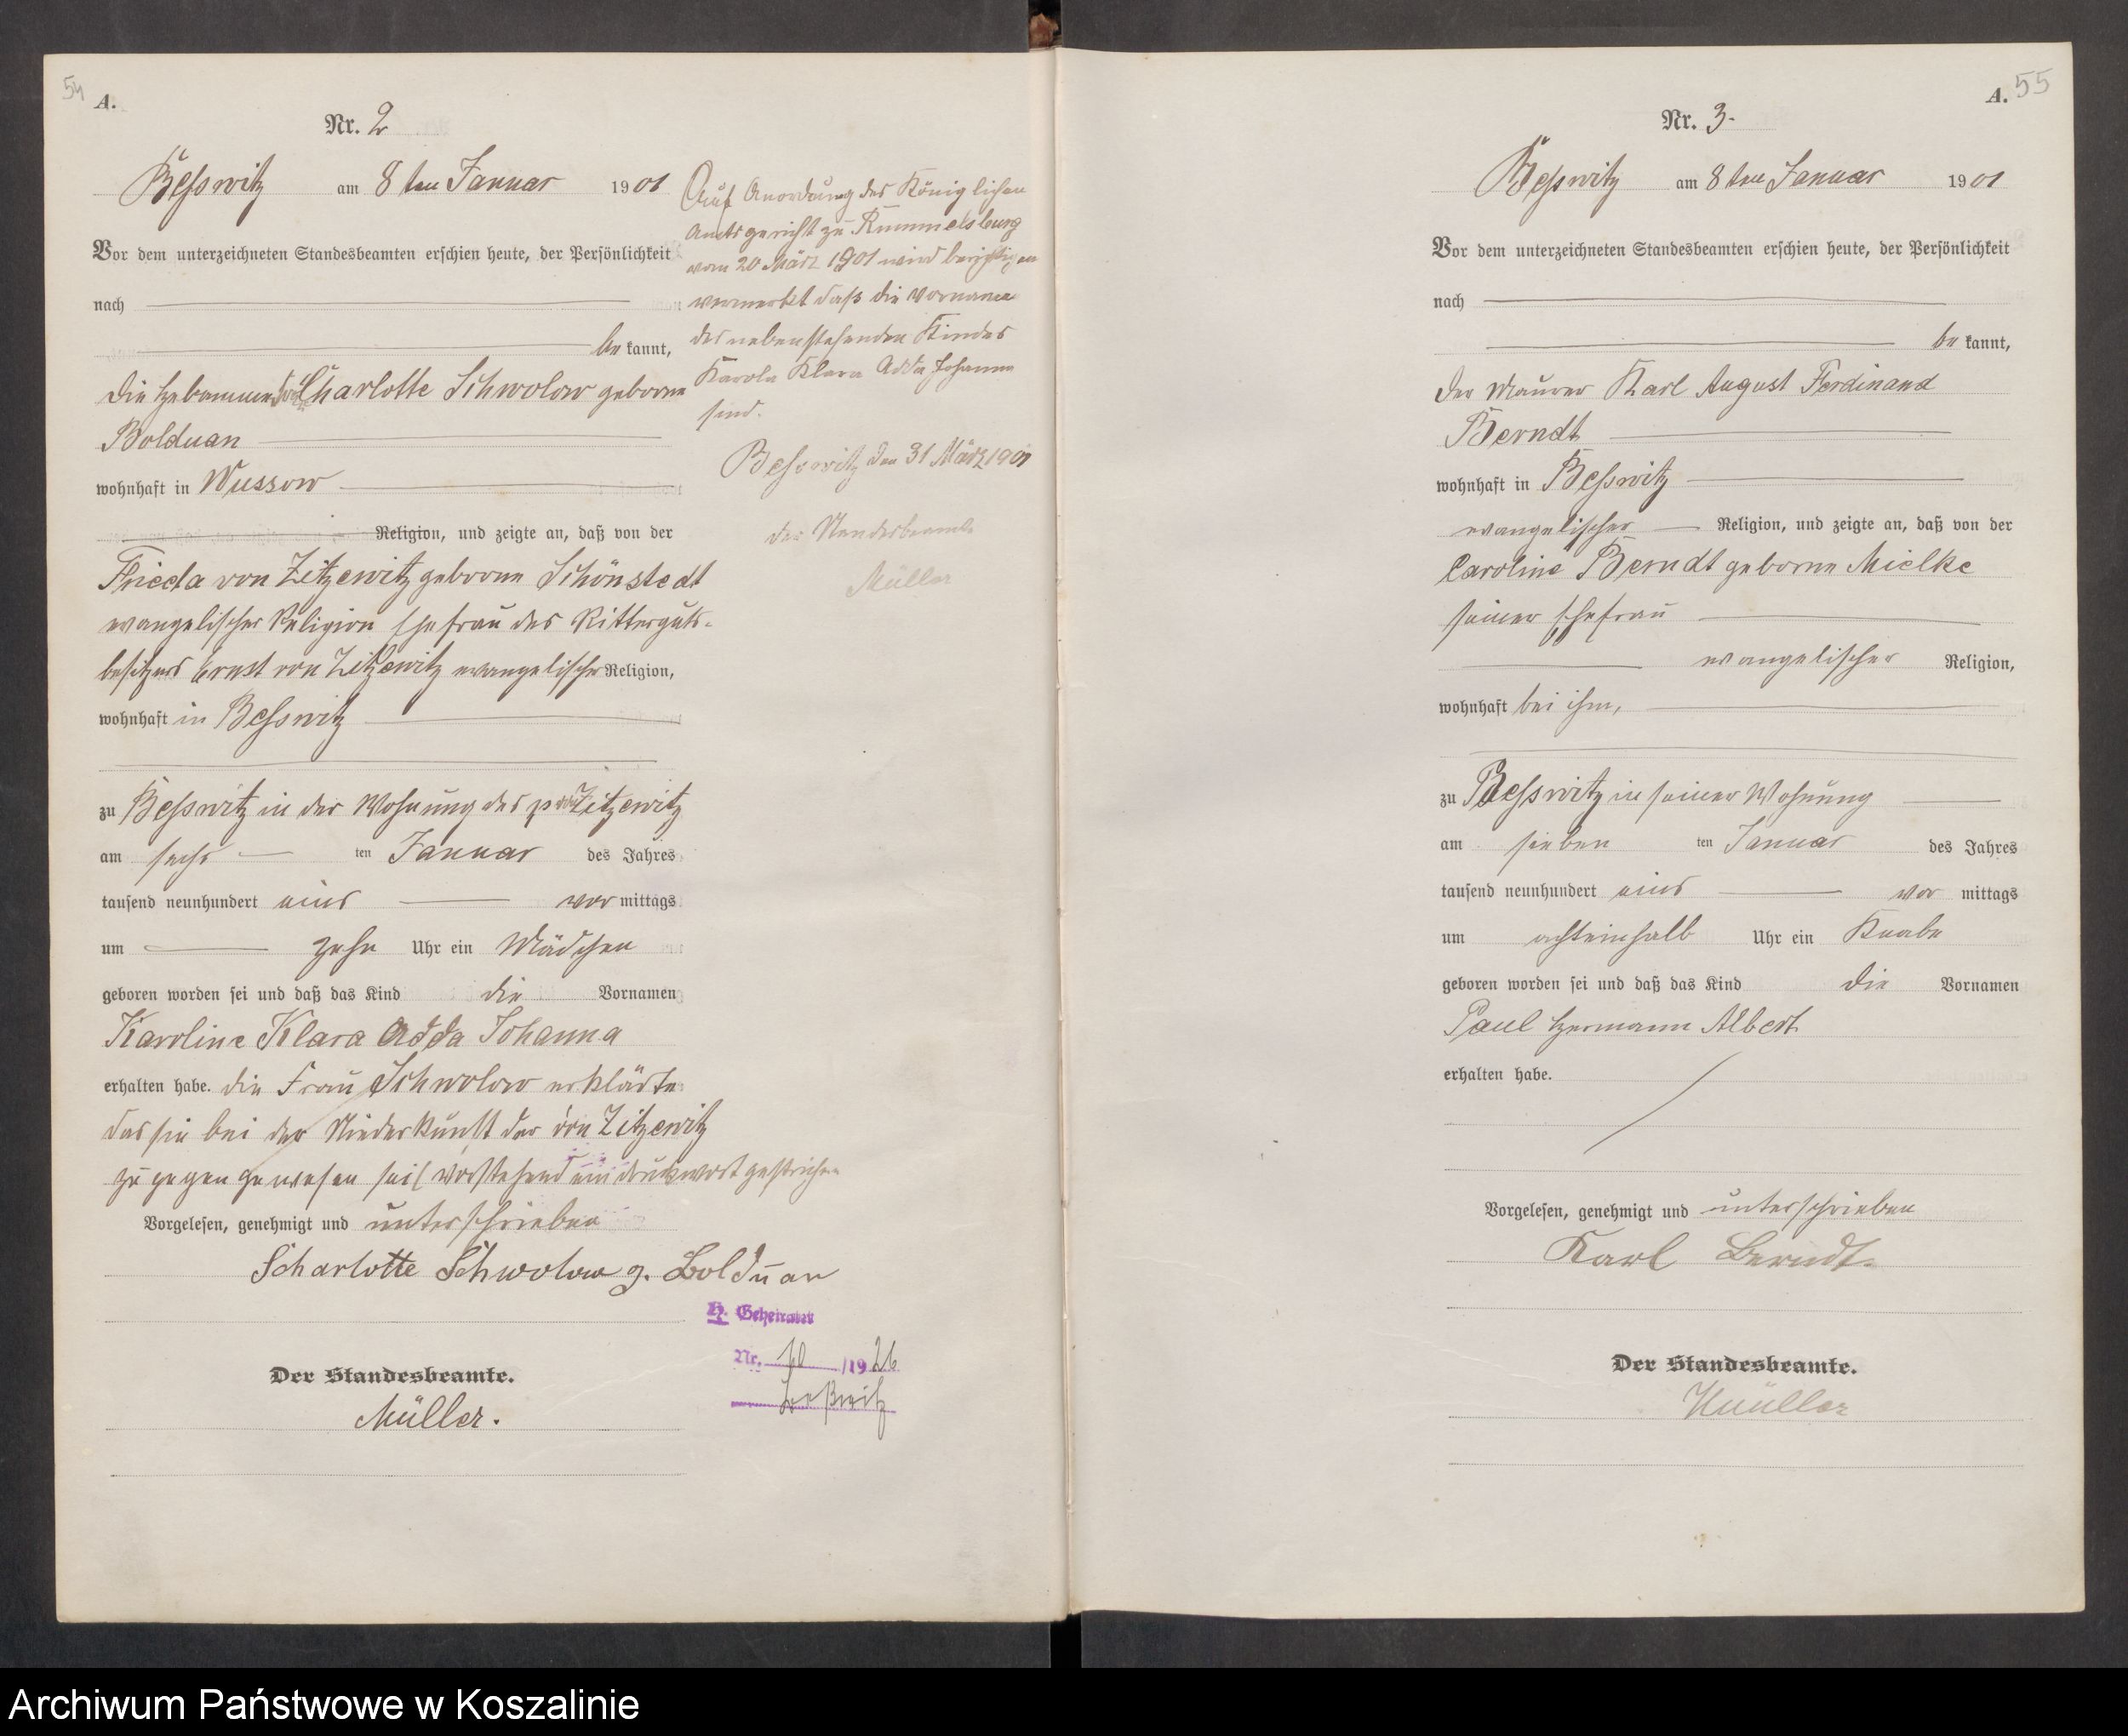 54
A.
Nr. 2
Beßwitz am 8ten Januar 1901
Vor dem unterzeichneten Standesbeamten erschien heute, der Persönlichkeit
nach
be kannt,
die Hebamme Charlotte Schwolow geborne
Bolduan
wohnhaft in Wussow
Religion, und zeigte an, daß von der
Frieda von Zitzewitz geborne Schönstedt
evangelischer Religion Ehefrau des Ritterguts-
besitzers Ernst von Zitzewitz evangelischer Religion,
wohnhaft in Beßwitz
zu Beßwitz in der Wohnung des von Zitzewitz
am sechs ten Januar des Jahres
tausend neunhundert eins vor mittags
um zehn Uhr ein Mädchen
geboren worden sei und daß das Kind die Vornamen
Karoline Klara Adda Johanna
erhalten habe. die Frau Schwolow erklärte
das sie bei der Niederkunft der von Zitzewitz
zugegen gewesen sei vorstehend ein druckwort gestrichen
Vorgelesen, genehmigt und unterschrieben
Scharlotte Schwolow g. Bolduan
Der Standesbeamte.
Müller.
Auf Anordung des Königlichen
Amtsgericht zu Rummelsburg
vom 20 März 1901 wird berichtigen
vermerkt daß die Vornamen
des nebenstehenden Kindes
Karola Klara Adda Johanna
sind.
Beßwitz den 31 März 1901
der Standesbeamte
Müller
H. Geheiratet
Nr. 10 /1926
Beßwitz
A. 55
Nr. 3.
Beßwitz am 8ten Januar 1901
Vor dem unterzeichneten Standesbeamten erschien heute, der Persönlichkeit
nach
be kannt,
der Maurer Karl August Ferdinand
Berndt
wohnhaft in Beßwitz
evangelischer Religion, und zeigte an, daß von der
Caroline Berndt geborne Mielke
seiner Ehefrau
evangelischer Religion,
wohnhaft bei ihm,
zu Beßwitz in seiner Wohnung
am sieben ten Januar des Jahres
tausend neunhundert eins vor mittags
um achteinhalb Uhr ein Knabe
geboren worden sei und daß das Kind die Vornamen
Paul Hermann Albert
erhalten habe.
Vorgelesen, genehmigt und unterschrieben
Karl Berndt.
Der Standesbeamte.
Müller
Archiwum Państwowe w Koszalinie